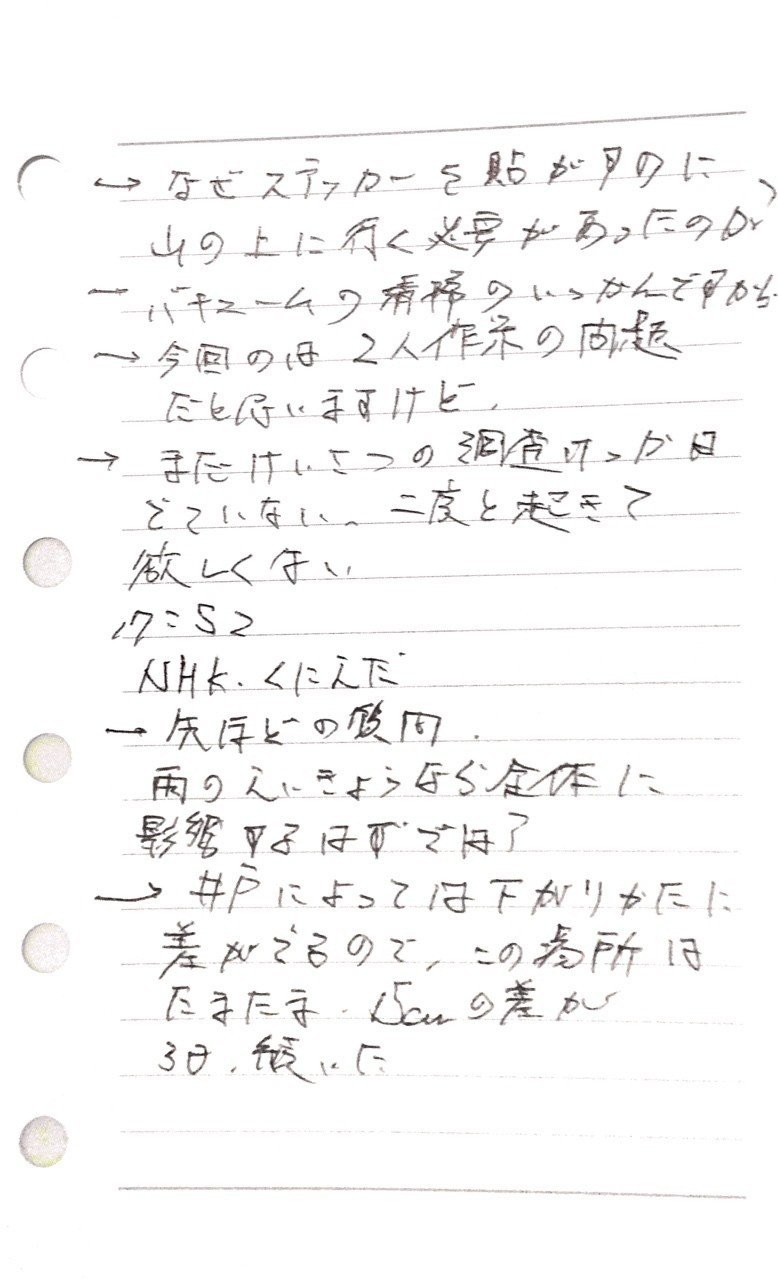 → なぜステッカーを貼がすのに、
山の上に行く必要があったのか
→ バキュームの清掃のいっかんですから
→ 今回のは 2人作業の問題
だと思いますけど、
→ まだけいさつの調査けっかは
でていない、二度と起きて
欲しくない
17:52
NHK. くにえだ
→ 先ほどの質問.
雨のえいきょうなら全体に
影響するはずでは?
→ 井戸によっては下がりかたに
差がでるので、この場所は
たまたま. 15cmの差が
3日.続いた